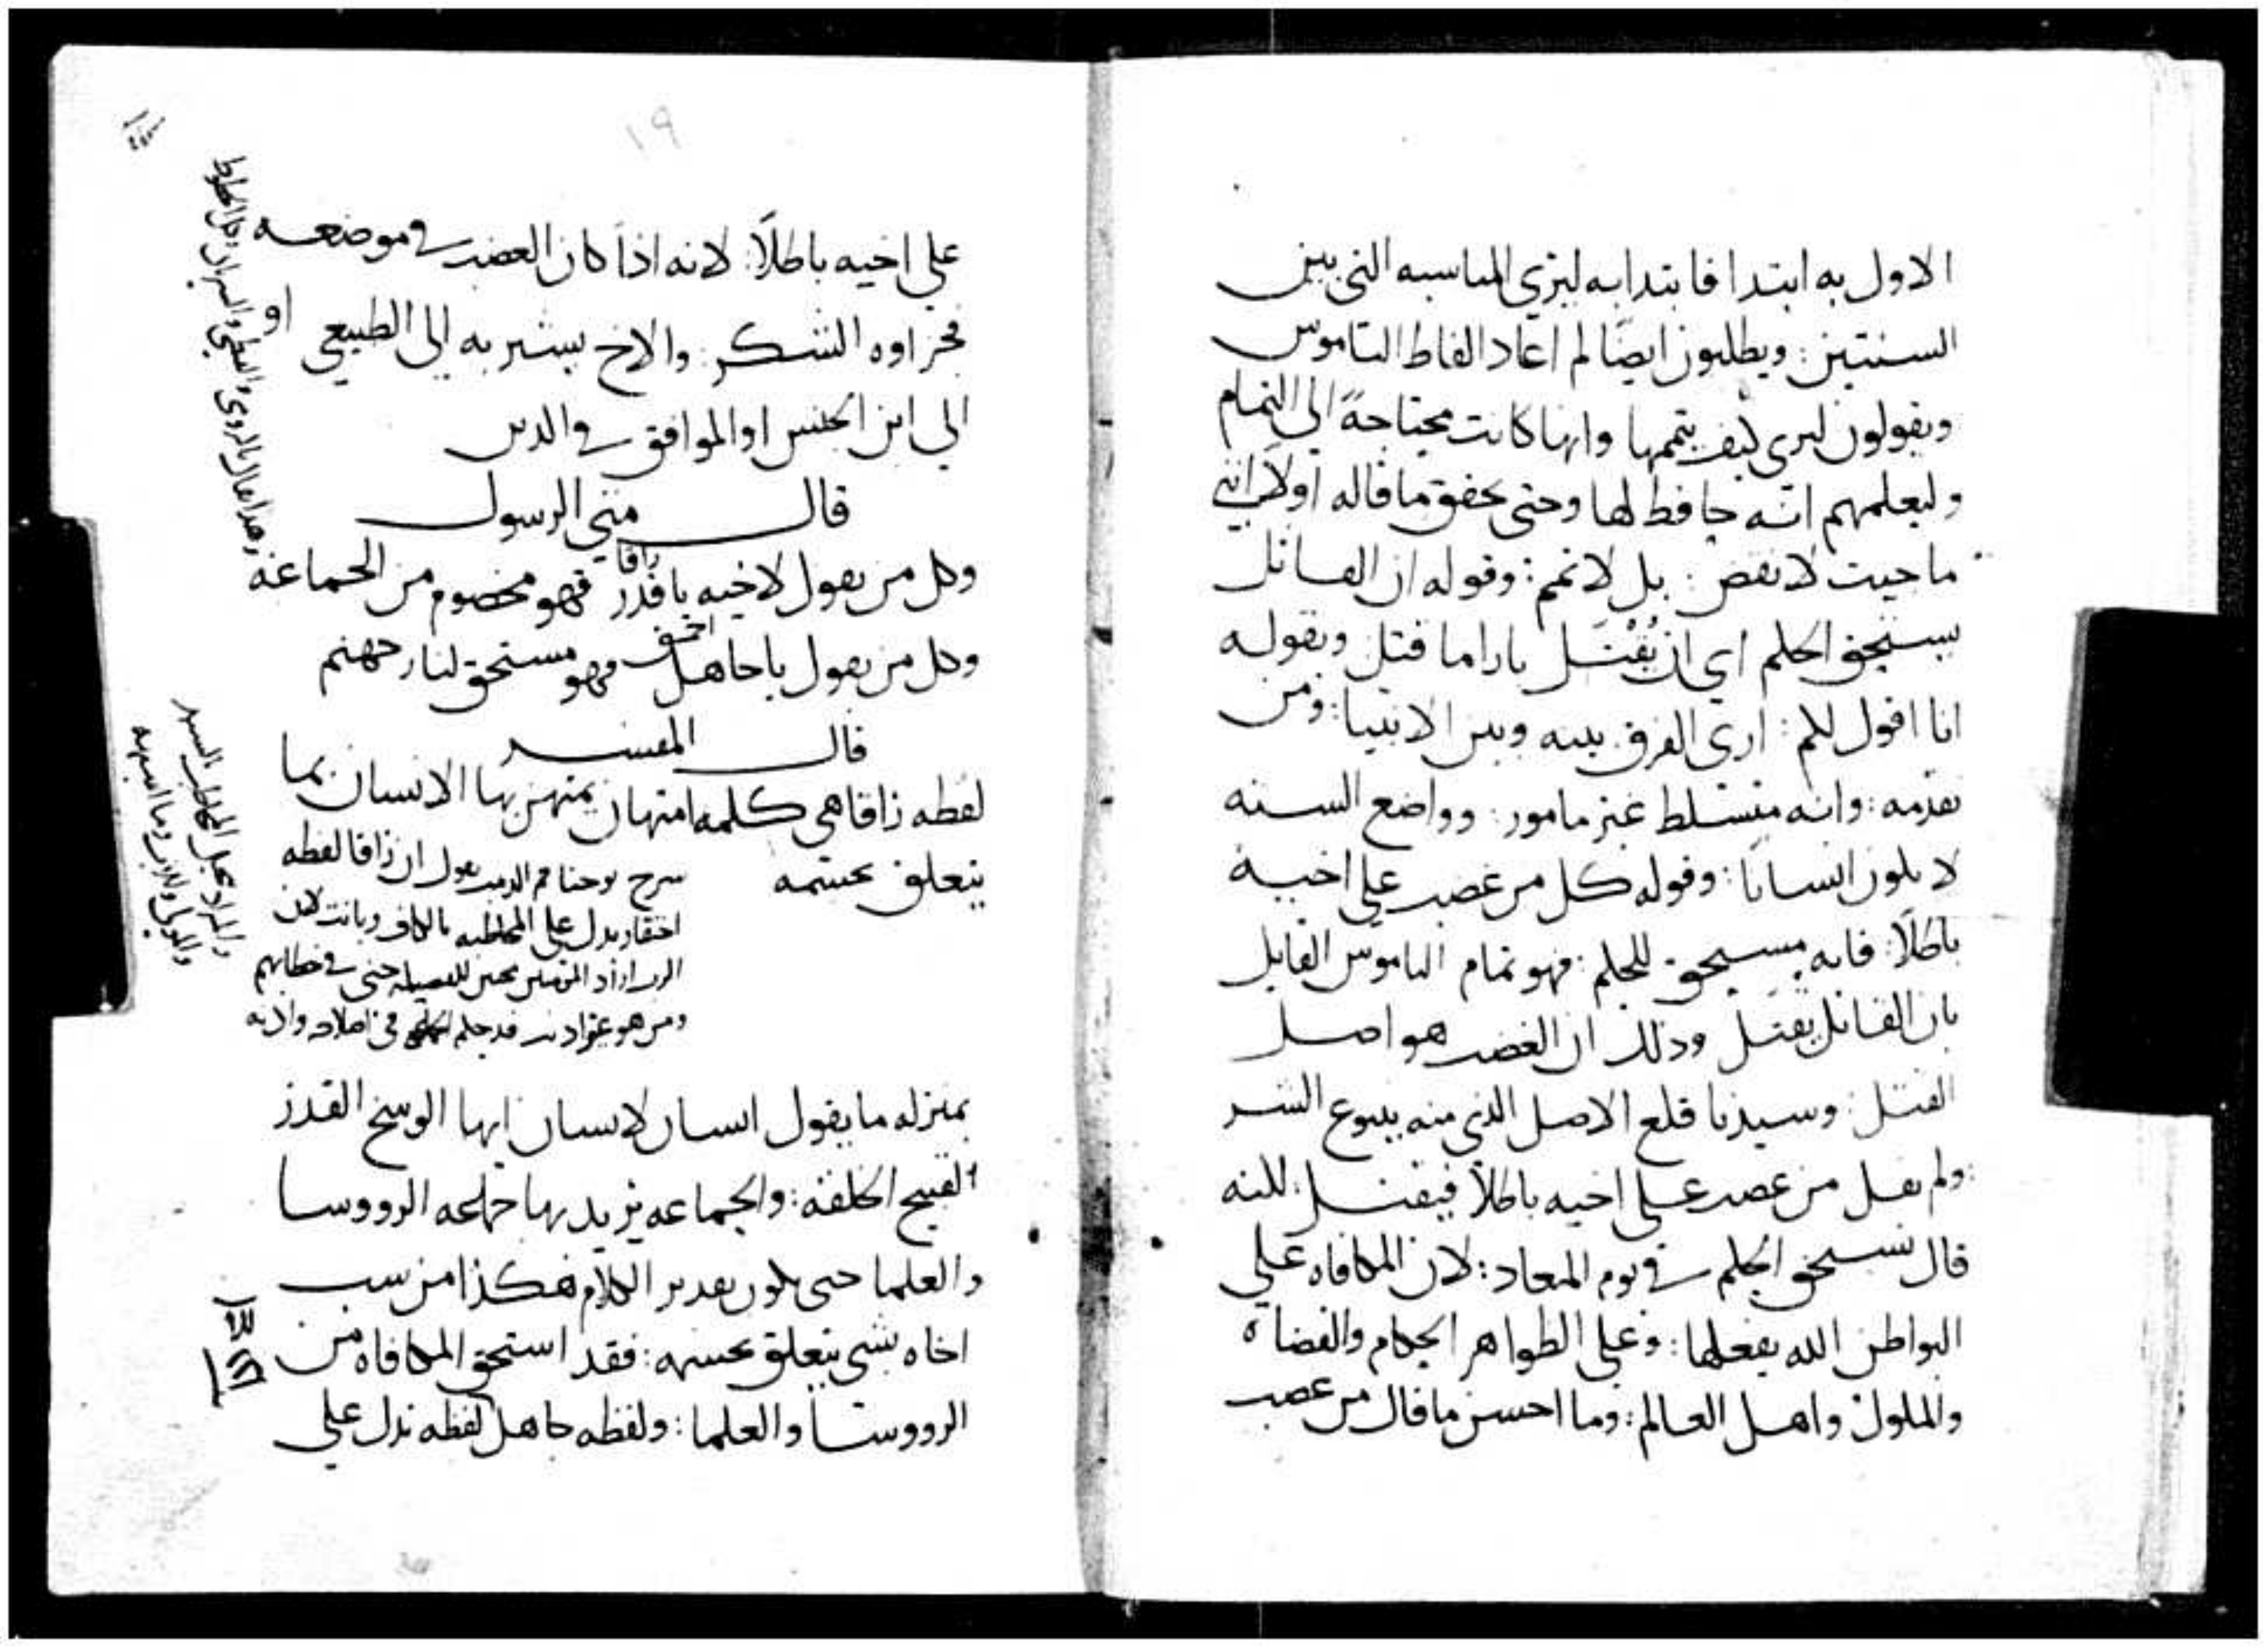 الاول به ابتدا فابتدا به ليري المناسبه التي بين
السنتين: ويطلبون ايضًا لم اعاد الفاظ الناموس
ويقولون ليري كيف يتممها وانها كانت محتاجةً الي التمام
وليعلمهم انه حافظ لها وحتى يحقق ما قاله اولاً انني
ما جيت لانقض: بل لاتمم: وقوله ان القاتل
يستحق الحكم اي ان يُقْتَل بازا ما قتل وبقوله
انا اقول لكم: اري الفرق بينه وبين الانبيا: ومن
تقدمه: وانه متسلط غير مامور: وواضع السنه
لا يكون انسانًا: وقوله كل من غضب علي اخيه
باطلاً: فانه يستحق للحكم: فهو تمام الناموس القايل
بان القاتل يقتل وذلك ان الغضب هو اصل
القتل: وسيدنا قلع الاصل الذي منه ينبوع الشر
ولم يقل من غضب علي اخيه باطلاً فيقتل: لكنه
قال يستحق الحكم في يوم المعاد: لان المكافاه علي
البواطن الله يفعلها: وعلي الظواهر الحكام والقضاه
والملوك واهل العالم: وما احسن ما قال من غضب
١٩
علي اخيه باطلاً: لانه اذا كان الغضب في موضعه
فجزاوه الشكر: والاخ يشير به الي الطبيعي او
الي ابن الجنس او الموافق في الدين
قال متي الرسول
وكل من يقول لاخيه ياقذر راقا فهو مخصوم من الجماعه
وكل من يقول ياجاهل احمق فهو مستحق لنار جهنم
قال المفسر
لفظه راقا هي كلمه امتهان يمتهن بها الانسان بما
يتعلق بجسمه
شرح يوحنا فم الذهب يقول ان راقا لفظه
احتقار يدل علي المخاطبه بالكاف وبانت لان
ومن هو
بمنزله ما يقول انسان لانسان ايها الوسخ القذر
القبيح الخلقه: والجماعه يريد بها جماعه الرووسا
والعلما حتى يكون تقدير الكلام هكذا من سب
اخاه بشي يتعلق بجسمه: فقد استحق المكافاه من
الرووسا والعلما: ولفظه جاهل لفظه تدل علي